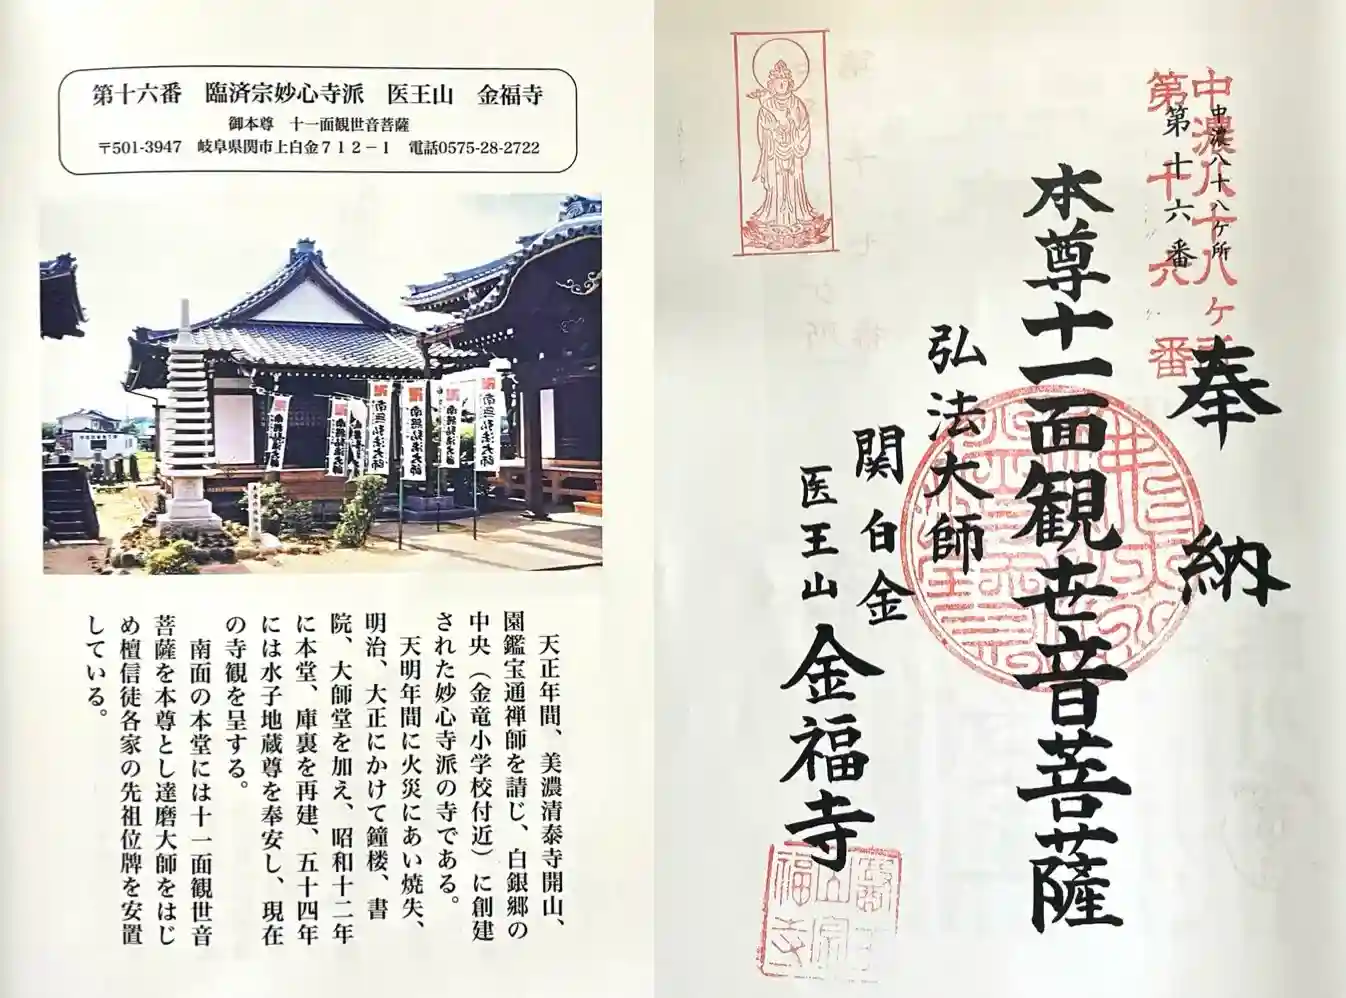 第十六番　臨済宗妙心寺派　医王山　金福寺
御本尊　十一面観世音菩薩
〒501-3947　岐阜県関市上白金７１２－１　電話0575-28-2722
南無弘法大師
南無弘法大師
南無弘法大師
南無弘法大師
南無弘法大師
南無弘法大師
天正年間、美濃清泰寺開山、
園鑑宝通禅師を請じ、白銀郷の
中央（金竜小学校付近）に創建
された妙心寺派の寺である。
天明年間に火災にあい焼失、
明治、大正にかけて鐘楼、書
院、大師堂を加え、昭和十二年
に本堂、庫裏を再建、五十四年
には水子地蔵尊を奉安し、現在
の寺観を呈する。
南面の本堂には十一面観世音
菩薩を本尊とし達磨大師をはじ
め檀信徒各家の先祖位牌を安置
している。
中濃八十八ヶ所
第十六番
中濃八十八ヶ所
第十六番
奉納
本尊十一面観世音菩薩
弘法大師
関白金
医王山金福寺